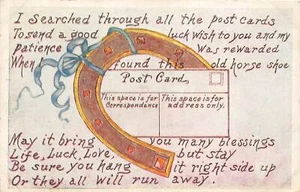 I Searched through all the post cards
To send a good luck wish to you and my
patience was rewarded
When I found this old horse shoe
Post Card.
This space is for Correspondence
This space is for address only.
May it bring you many blessings
Life, Luck, Love, but stay
Be sure you hang it right side up
Or they all will run away.